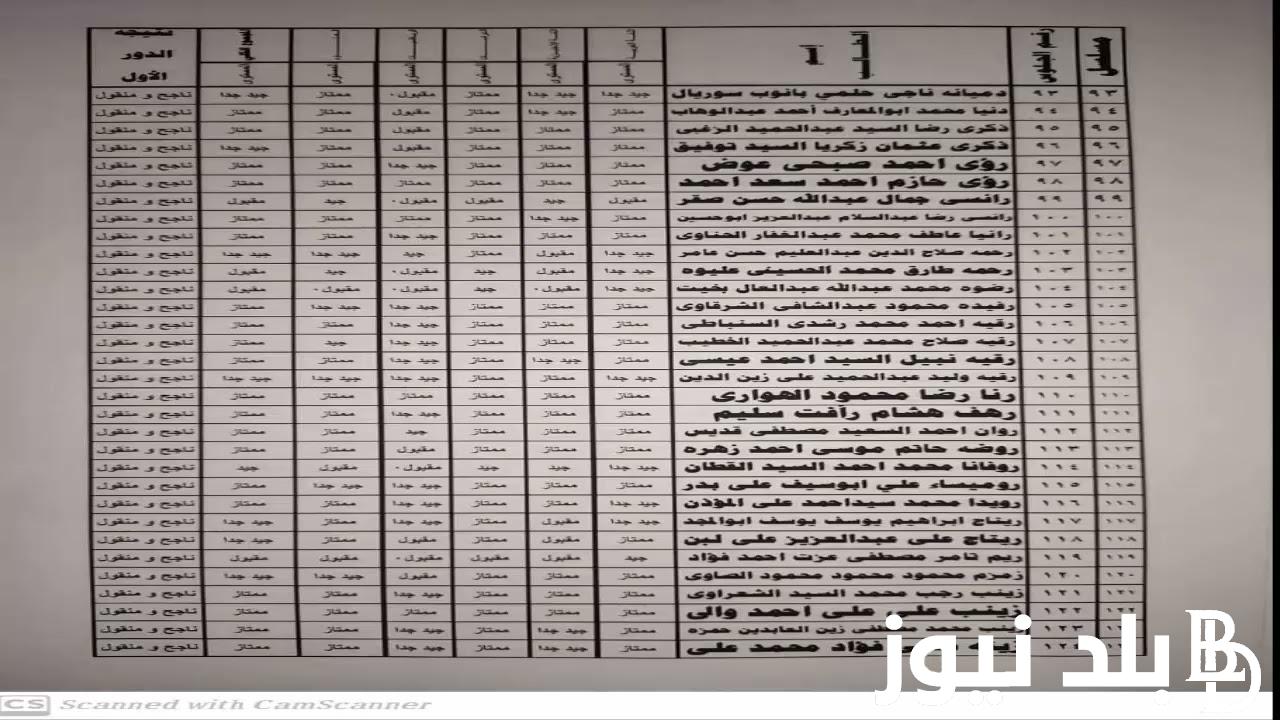 مسلسل رقم الجلوس إسم الطالب نتيجة الدور الأول
٩٣ ٩٣ دميانه ناجى حلمي بانوب سوريال جيد جدا جيد جدا ممتاز مقبول ممتاز جيد جدا ناجح و منقول
٩٤ ٩٤ دنيا محمد ابوالمعارف أحمد عبدالوهاب ممتاز جيد جدا ممتاز مقبول ممتاز ممتاز ناجح و منقول
٩٥ ٩٥ ذكرى رضا السيد عبدالحميد الزغبى ممتاز ممتاز ممتاز مقبول ممتاز ممتاز ناجح و منقول
٩٦ ٩٦ ذكرى عثمان زكريا السيد توفيق ممتاز ممتاز ممتاز مقبول ممتاز جيد جدا ناجح و منقول
٩٧ ٩٧ رؤى احمد صبحى عوض ممتاز ممتاز ممتاز جيد جدا ممتاز ممتاز ناجح و منقول
٩٨ ٩٨ رؤى حازم احمد سعد احمد ممتاز ممتاز ممتاز ممتاز ممتاز ممتاز ناجح و منقول
٩٩ ٩٩ رانسى جمال عبدالله حسن صقر مقبول جيد مقبول مقبول جيد مقبول ناجح و منقول
١٠٠ ١٠٠ رانسى رضا عبدالسلام عبدالعزيز ابوحسين ممتاز جيد جدا ممتاز ممتاز ممتاز ممتاز ناجح و منقول
١٠١ ١٠١ رانيا عاطف محمد عبدالغفار الحناوى ممتاز ممتاز ممتاز جيد جدا ممتاز ممتاز ناجح و منقول
١٠٢ ١٠٢ رحمه صلاح الدين عبدالعليم حسن عامر جيد جدا مقبول ممتاز جيد جيد جدا جيد جدا ناجح و منقول
١٠٣ ١٠٣ رحمه طارق محمد الحسينى عليوه جيد جدا مقبول جيد مقبول جيد مقبول ناجح و منقول
١٠٤ ١٠٤ رضوه محمد عبدالله عبدالعال بخيت جيد جدا مقبول جيد مقبول مقبول مقبول ناجح و منقول
١٠٥ ١٠٥ رفيده محمود عبدالشافى الشرقاوى ممتاز ممتاز ممتاز جيد جدا جيد جدا ممتاز ناجح و منقول
١٠٦ ١٠٦ رقيه احمد محمد رشدى السنباطى ممتاز ممتاز ممتاز جيد جدا ممتاز ممتاز ناجح و منقول
١٠٧ ١٠٧ رقيه صلاح محمد عبدالحميد الخطيب ممتاز ممتاز ممتاز جيد جدا جيد ممتاز ناجح و منقول
١٠٨ ١٠٨ رقيه نبيل السيد احمد عيسى ممتاز جيد جدا ممتاز جيد جدا ممتاز ممتاز ناجح و منقول
١٠٩ ١٠٩ رقيه وليد عبدالحميد على زين الدين جيد جدا ممتاز ممتاز جيد جدا جيد جدا جيد جدا ناجح و منقول
١١٠ ١١٠ رنا رضا محمود الهوارى ممتاز ممتاز ممتاز ممتاز ممتاز ممتاز ناجح و منقول
١١١ ١١١ رهف هشام رأفت سليم ممتاز ممتاز ممتاز جيد جدا ممتاز ممتاز ناجح و منقول
١١٢ ١١٢ روان احمد السعيد مصطفى قديس ممتاز ممتاز ممتاز جيد ممتاز ممتاز ناجح و منقول
١١٣ ١١٣ روضه حاتم موسى احمد زهره ممتاز ممتاز ممتاز مقبول ممتاز ممتاز ناجح و منقول
١١٤ ١١٤ روفانا محمد احمد السيد القطان جيد جدا جيد جيد مقبول مقبول جيد ناجح و منقول
١١٥ ١١٥ روميساء علي ابوسيف على بدر ممتاز ممتاز ممتاز جيد جدا جيد جدا ممتاز ناجح و منقول
١١٦ ١١٦ رويدا محمد سيداحمد على المؤذن ممتاز جيد جدا ممتاز جيد جدا ممتاز ممتاز ناجح و منقول
١١٧ ١١٧ ريتاج ابراهيم يوسف يوسف ابوالمجد جيد جدا مقبول ممتاز جيد جدا ممتاز جيد جدا ناجح و منقول
١١٨ ١١٨ ريتاج على عبدالعزيز على لبن ممتاز مقبول ممتاز مقبول ممتاز جيد جدا ناجح و منقول
١١٩ ١١٩ ريم تامر مصطفى عزت احمد فؤاد جيد مقبول مقبول مقبول مقبول مقبول ناجح و منقول
١٢٠ ١٢٠ زمزم محمود محمود محمود الصاوى ممتاز ممتاز ممتاز مقبول جيد جدا جيد جدا ناجح و منقول
١٢١ ١٢١ زينب رجب محمد السيد الشعراوى ممتاز ممتاز ممتاز جيد جدا ممتاز ممتاز ناجح و منقول
١٢٢ ١٢٢ زينب على على احمد والى ممتاز ممتاز ممتاز ممتاز ممتاز ممتاز ناجح و منقول
١٢٣ زينب محمد مصطفى زين العابدين حمزه ممتاز جيد جدا ممتاز جيد جدا ممتاز ممتاز ناجح و منقول
١٢٤ زينه فؤاد محمد على ممتاز جيد جدا ممتاز جيد جدا ممتاز ممتاز ناجح و منقول
بلد نيوز B
CS Scanned with CamScanner